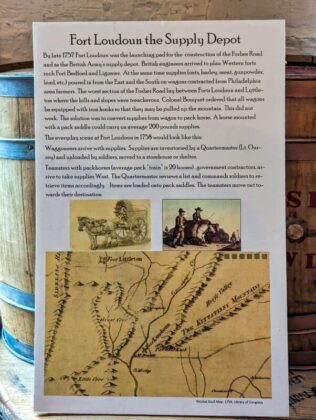 Fort Loudoun the Supply Depot
By late 1757 Fort Loudoun was the launching pad for the construction of the Forbes Road
and as the British Army's supply depot. British engineers arrived to plan Western forts
such Fort Bedford and Ligonier. At the same time supplies (oats, barley, meat, gunpowder,
lead, etc.) poured in from the East and the South on wagons contracted from Philadelphia
area farmers. The worst section of the Forbes Road lay between Forts Loudoun and Lyttle-
ton where the hills and slopes were treacherous. Colonel Bouquet ordered that all wagons
be equipped with iron hooks so that they may be pulled up the mountain. This did not
work. The solution was to convert supplies from wagon to pack horse. A horse mounted
with a pack saddle could carry on average 200 pounds supplies.
The everyday scene at Fort Loudoun in 1758 would look like this:
Waggoneers arrive with supplies. Supplies are inventoried by a Quartermaster (Lt. Our-
rey) and unloaded by soldiers, moved to a storehouse or shelter.
Teamsters with packhorses (average pack "train" is 20 horses), government contractors, ar-
rive to take supplies West. The Quartermaster reviews a list and commands soldiers to re-
trieve items accordingly. Items are loaded onto pack saddles. The teamsters move out to-
wards their destination.
Fort Littleton
Great Cove
Path Valley
THE KITTATINNY MOUNTAIN
Little Cove
Nicolas Scull Map, 1759, Library of Congress